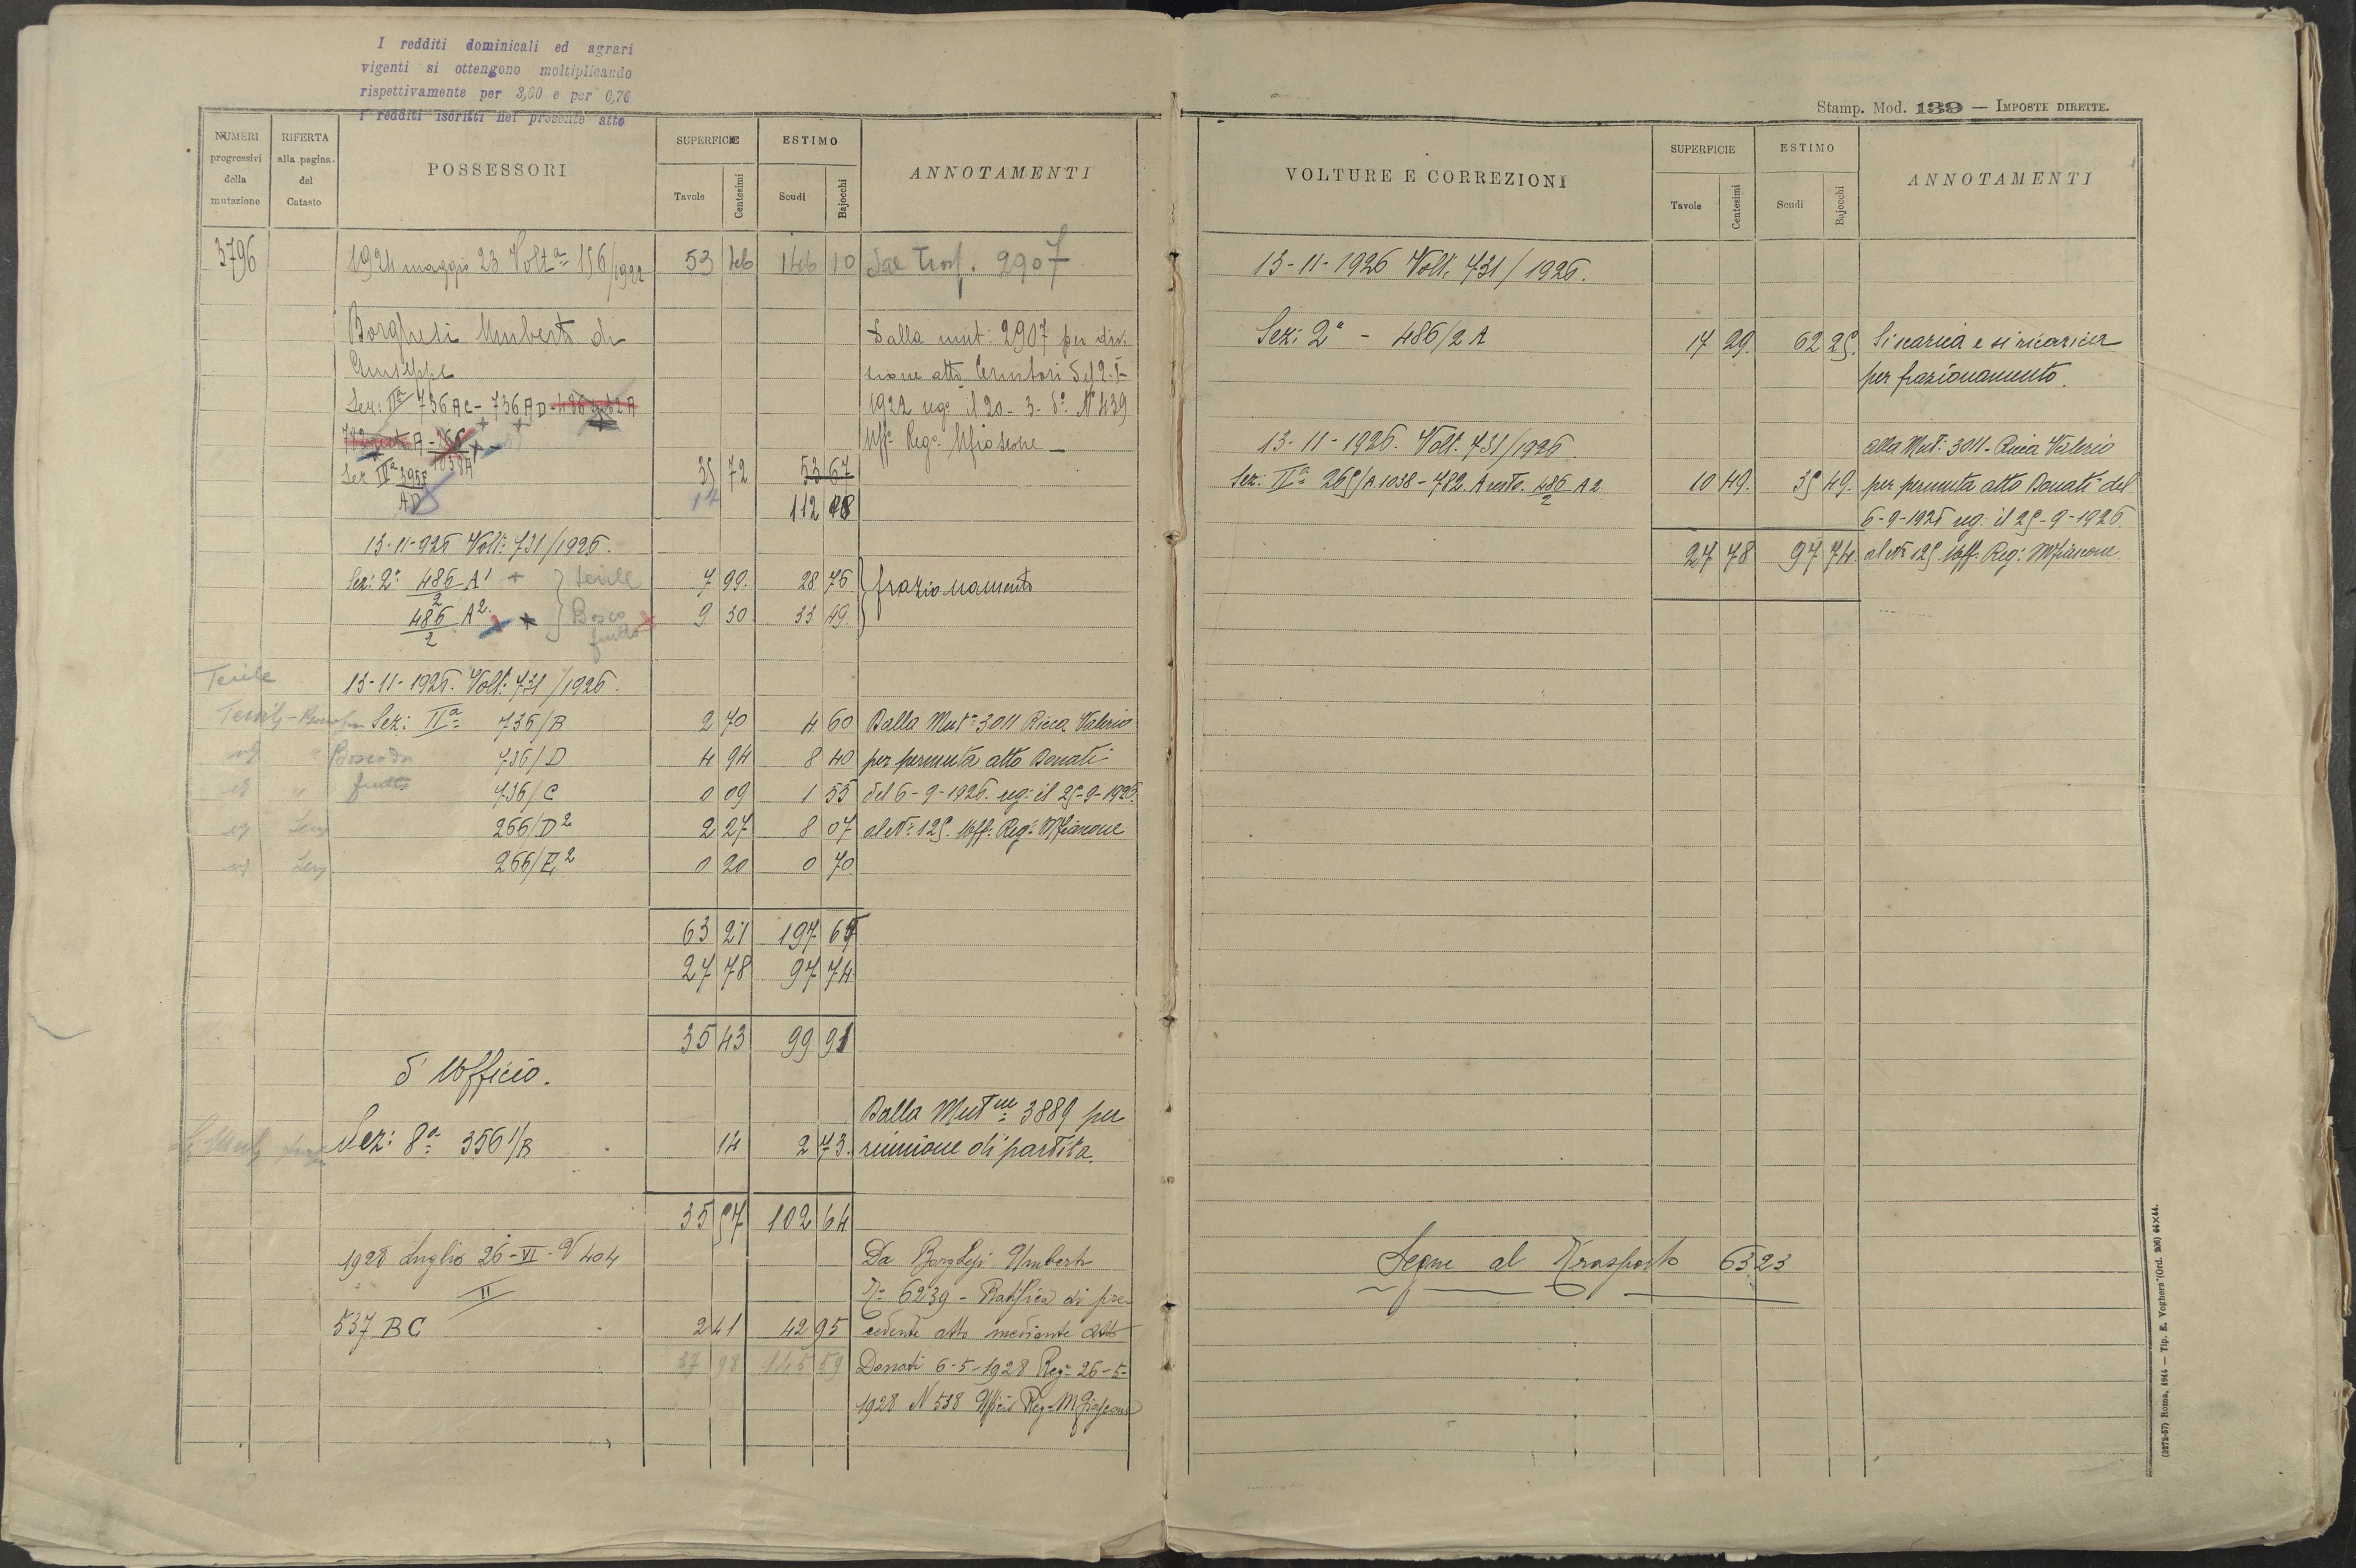 I redditi dominicali ed agrari
vigenti si ottengono moltiplicando
rispettivamente per 3,60 e per 0,76
i redditi iscritti nel presente atto
NUMERI progressivi della mutazione
RIFERTA alla pagina del Catasto
POSSESSORI
SUPERFICIE
Tavole
Centesimi
ESTIMO
Scudi
Bajocchi
ANNOTAMENTI
3796
1924 maggio 23 Volt.a 156/1922 53 46 146 10 Dal Trasf. 2907
Borghesi Umberto di Dalla mut. 2907 per divi
Giuseppe sione atto
Sez: IIa 736 AC - 736 AD 1922 reg. il 20-3-do N 439
Uff. Reg.
Sez 35 72 53 67
AD 14 112 48
13-11-926 Volt: 731/1926.
Sez: 2a 486/2 A1 + } Sterile 7 99. 28 76. } frazionamento
486/2 A2. } Bosco frutto 9 30 33 49.
Sterile 13-11-1926. Volt: 731/1926.
Sez: IIa 736/B 2 70 4 60 Dalla Mut. 3011 Ricca Valerio
Bosco da 736/D 4 94 8 40 per permuta atto Donati
frutto 736/C 0 09 1 55 del 6-9-1926. reg: il 25-9-1926.
266/D2 2 27 8 07 al No 125. Uff. Reg. M.fiascone
266/E2 0 20 0 70
63 21 197 65
27 78 97 74
35 43 99 91
d'Ufficio.
Dalla Mutne 3889 per
Sez: 8a 356 1/B 14 2 73. riunione di partita.
35 57 102 64
1928 Luglio 26-VI-V 404 Da Borghesi Umberto
II 6239 - Ratifica di pre
537 BC 2 41 42 95 cedente atto mediante atto
37 98 145 59 Donati 6-5-1928 Reg. 26-5-
1928 N 538 Ufficio Reg. M.fiascone
Stamp. Mod. 139 — IMPOSTE DIRETTE.
VOLTURE E CORREZIONI
SUPERFICIE
Tavole
Centesimi
ESTIMO
Scudi
Bajocchi
ANNOTAMENTI
13-11-1926 Volt. 731/1926.
Sez: 2a - 486/2 A 17 29. 62 25. Si scarica e si ricarica
per frazionamento.
13-11-1926. Volt. 731/1926. alla Mut. 3011- Ricca Valerio
Sez: IIa 265/A.1038-782. A resto. 486/2 A2 10 49. 35 49. per permuta atto Donati del
6-9-1926 reg: il 25-9-1926
27 78 97 74. al No 125. Uff. Reg. M.fiascone.
Segue al Trasporto 6323
(3272-57) Roma, 1914 — Tip. E. Voghera (Ord. 206) 64×44.